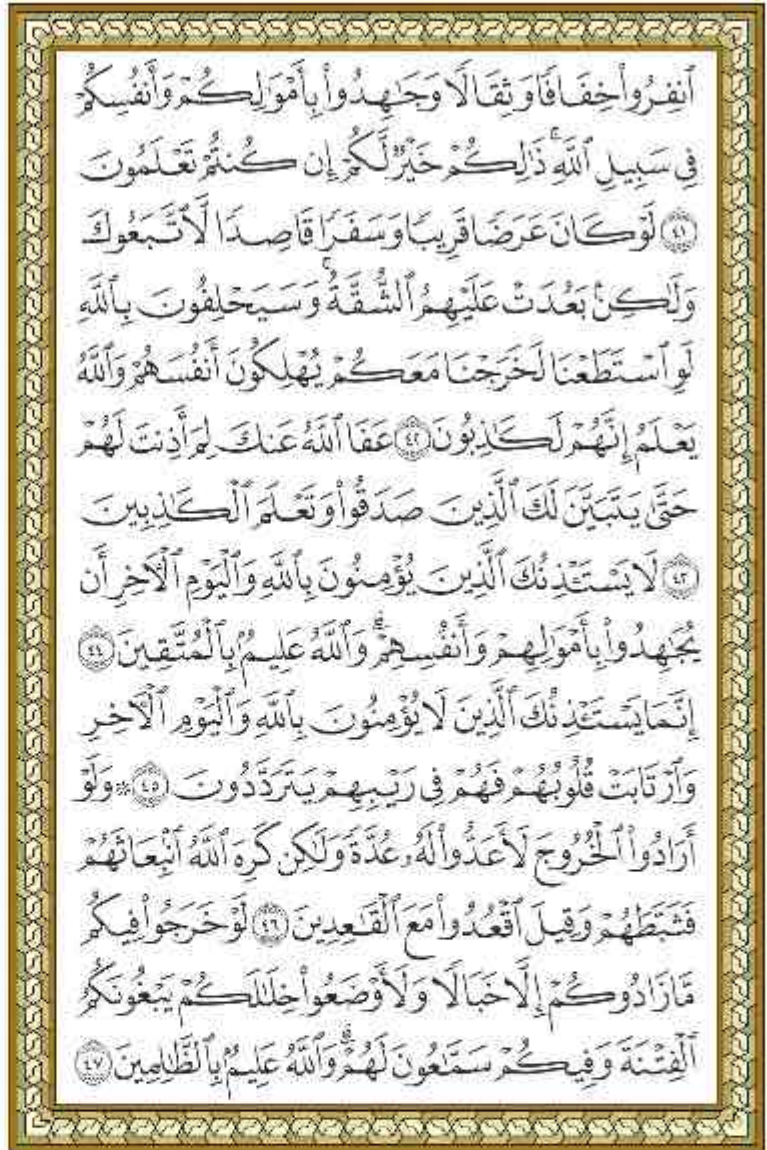 ٱنفِرُوا۟ خِفَافًا وَثِقَالًا وَجَٰهِدُوا۟ بِأَمْوَٰلِكُمْ وَأَنفُسِكُمْ
فِى سَبِيلِ ٱللَّهِ ۚ ذَٰلِكُمْ خَيْرٌ لَّكُمْ إِن كُنتُمْ تَعْلَمُونَ
٤١ لَوْ كَانَ عَرَضًا قَرِيبًا وَسَفَرًا قَاصِدًا لَّٱتَّبَعُوكَ
وَلَٰكِنۢ بَعُدَتْ عَلَيْهِمُ ٱلشُّقَّةُ ۚ وَسَيَحْلِفُونَ بِٱللَّهِ
لَوِ ٱسْتَطَعْنَا لَخَرَجْنَا مَعَكُمْ يُهْلِكُونَ أَنفُسَهُمْ وَٱللَّهُ
يَعْلَمُ إِنَّهُمْ لَكَٰذِبُونَ ٤٢ عَفَا ٱللَّهُ عَنكَ لِمَ أَذِنتَ لَهُمْ
حَتَّىٰ يَتَبَيَّنَ لَكَ ٱلَّذِينَ صَدَقُوا۟ وَتَعْلَمَ ٱلْكَٰذِبِينَ
٤٣ لَا يَسْتَـْٔذِنُكَ ٱلَّذِينَ يُؤْمِنُونَ بِٱللَّهِ وَٱلْيَوْمِ ٱلْـَٔاخِرِ أَن
يُجَٰهِدُوا۟ بِأَمْوَٰلِهِمْ وَأَنفُسِهِمْ ۗ وَٱللَّهُ عَلِيمٌۢ بِٱلْمُتَّقِينَ ٤٤
إِنَّمَا يَسْتَـْٔذِنُكَ ٱلَّذِينَ لَا يُؤْمِنُونَ بِٱللَّهِ وَٱلْيَوْمِ ٱلْـَٔاخِرِ
وَٱرْتَابَتْ قُلُوبُهُمْ فَهُمْ فِى رَيْبِهِمْ يَتَرَدَّدُونَ ٤٥ * وَلَوْ
أَرَادُوا۟ ٱلْخُرُوجَ لَأَعَدُّوا۟ لَهُۥ عُدَّةً وَلَٰكِن كَرِهَ ٱللَّهُ ٱنۢبِعَاثَهُمْ
فَثَبَّطَهُمْ وَقِيلَ ٱقْعُدُوا۟ مَعَ ٱلْقَٰعِدِينَ ٤٦ لَوْ خَرَجُوا۟ فِيكُم
مَّا زَادُوكُمْ إِلَّا خَبَالًا وَلَأَوْضَعُوا۟ خِلَٰلَكُمْ يَبْغُونَكُمُ
ٱلْفِتْنَةَ وَفِيكُمْ سَمَّٰعُونَ لَهُمْ ۗ وَٱللَّهُ عَلِيمٌۢ بِٱلظَّٰلِمِينَ ٤٧